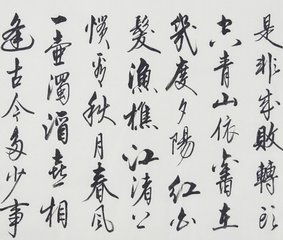 是非成敗轉頭
空青山依舊在
幾度夕陽紅白
髮漁樵江渚上
慣看秋月春風
一壺濁酒喜相
逢古今多少事